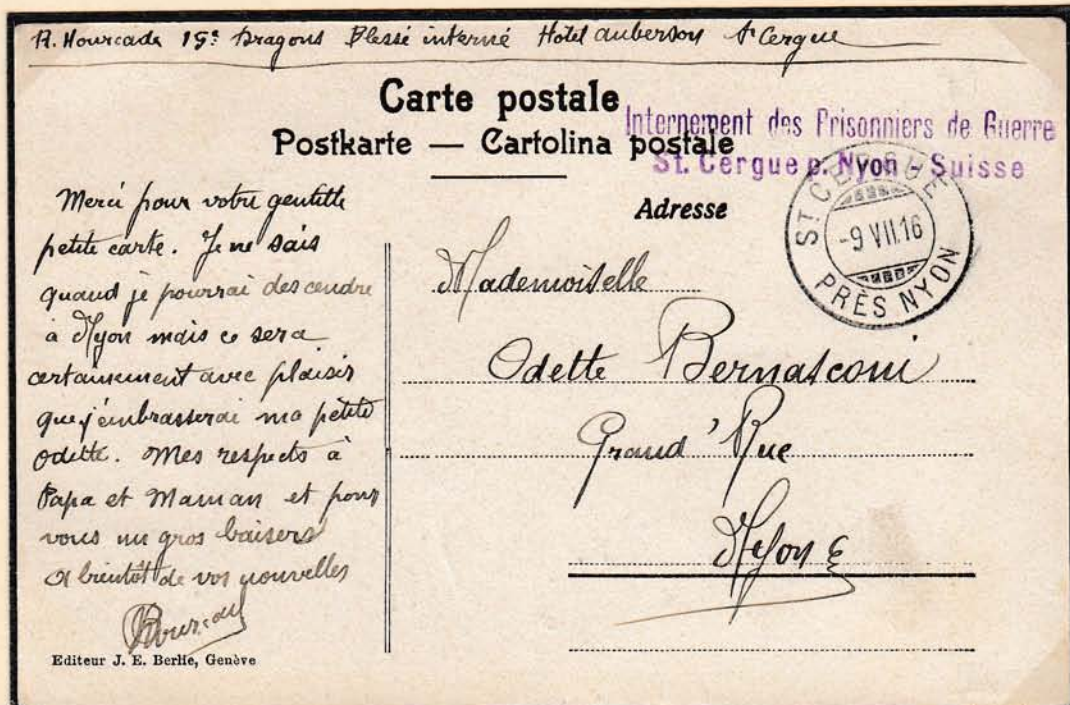 R. Hourcade 15e Dragons Blessé interné Hotel auberson St Cergue
Carte postale
Postkarte — Cartolina postale
Internement des Prisonniers de Guerre
St. Cergue p. Nyon - Suisse
ST CERGUE
-9 VII.16
PRÈS NYON
Merci pour votre gentille
petite carte. Je ne sais
quand je pourrai descendre
à Nyon mais ce sera
certainement avec plaisir
que j'embrasserai ma petite
Odette. Mes respects à
Papa et Maman et pour
vous un gros baisers
A bientôt de vos nouvelles
Hourcade
Editeur J. E. Berlie, Genève
Adresse
Mademoiselle
Odette Bernasconi
Grand' Rue
Nyon